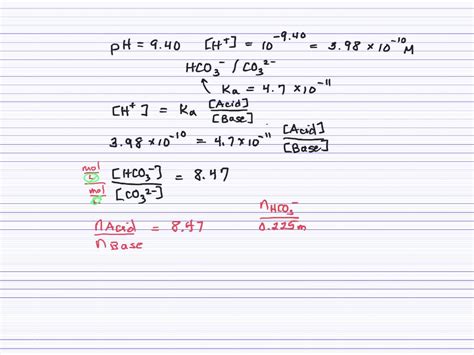 pH = 9.40 [H⁺] = 10^-9.40 = 3.98 × 10^-10 M
HCO₃⁻ / CO₃²⁻
Ka = 4.7 × 10^-11
[H⁺] = Ka [Acid] / [Base]
3.98 × 10^-10 = 4.7 × 10^-11 [Acid] / [Base]
mol/L [HCO₃⁻] / mol/L [CO₃²⁻] = 8.47
nAcid / nBase = 8.47
nHCO₃⁻ / 0.225 m